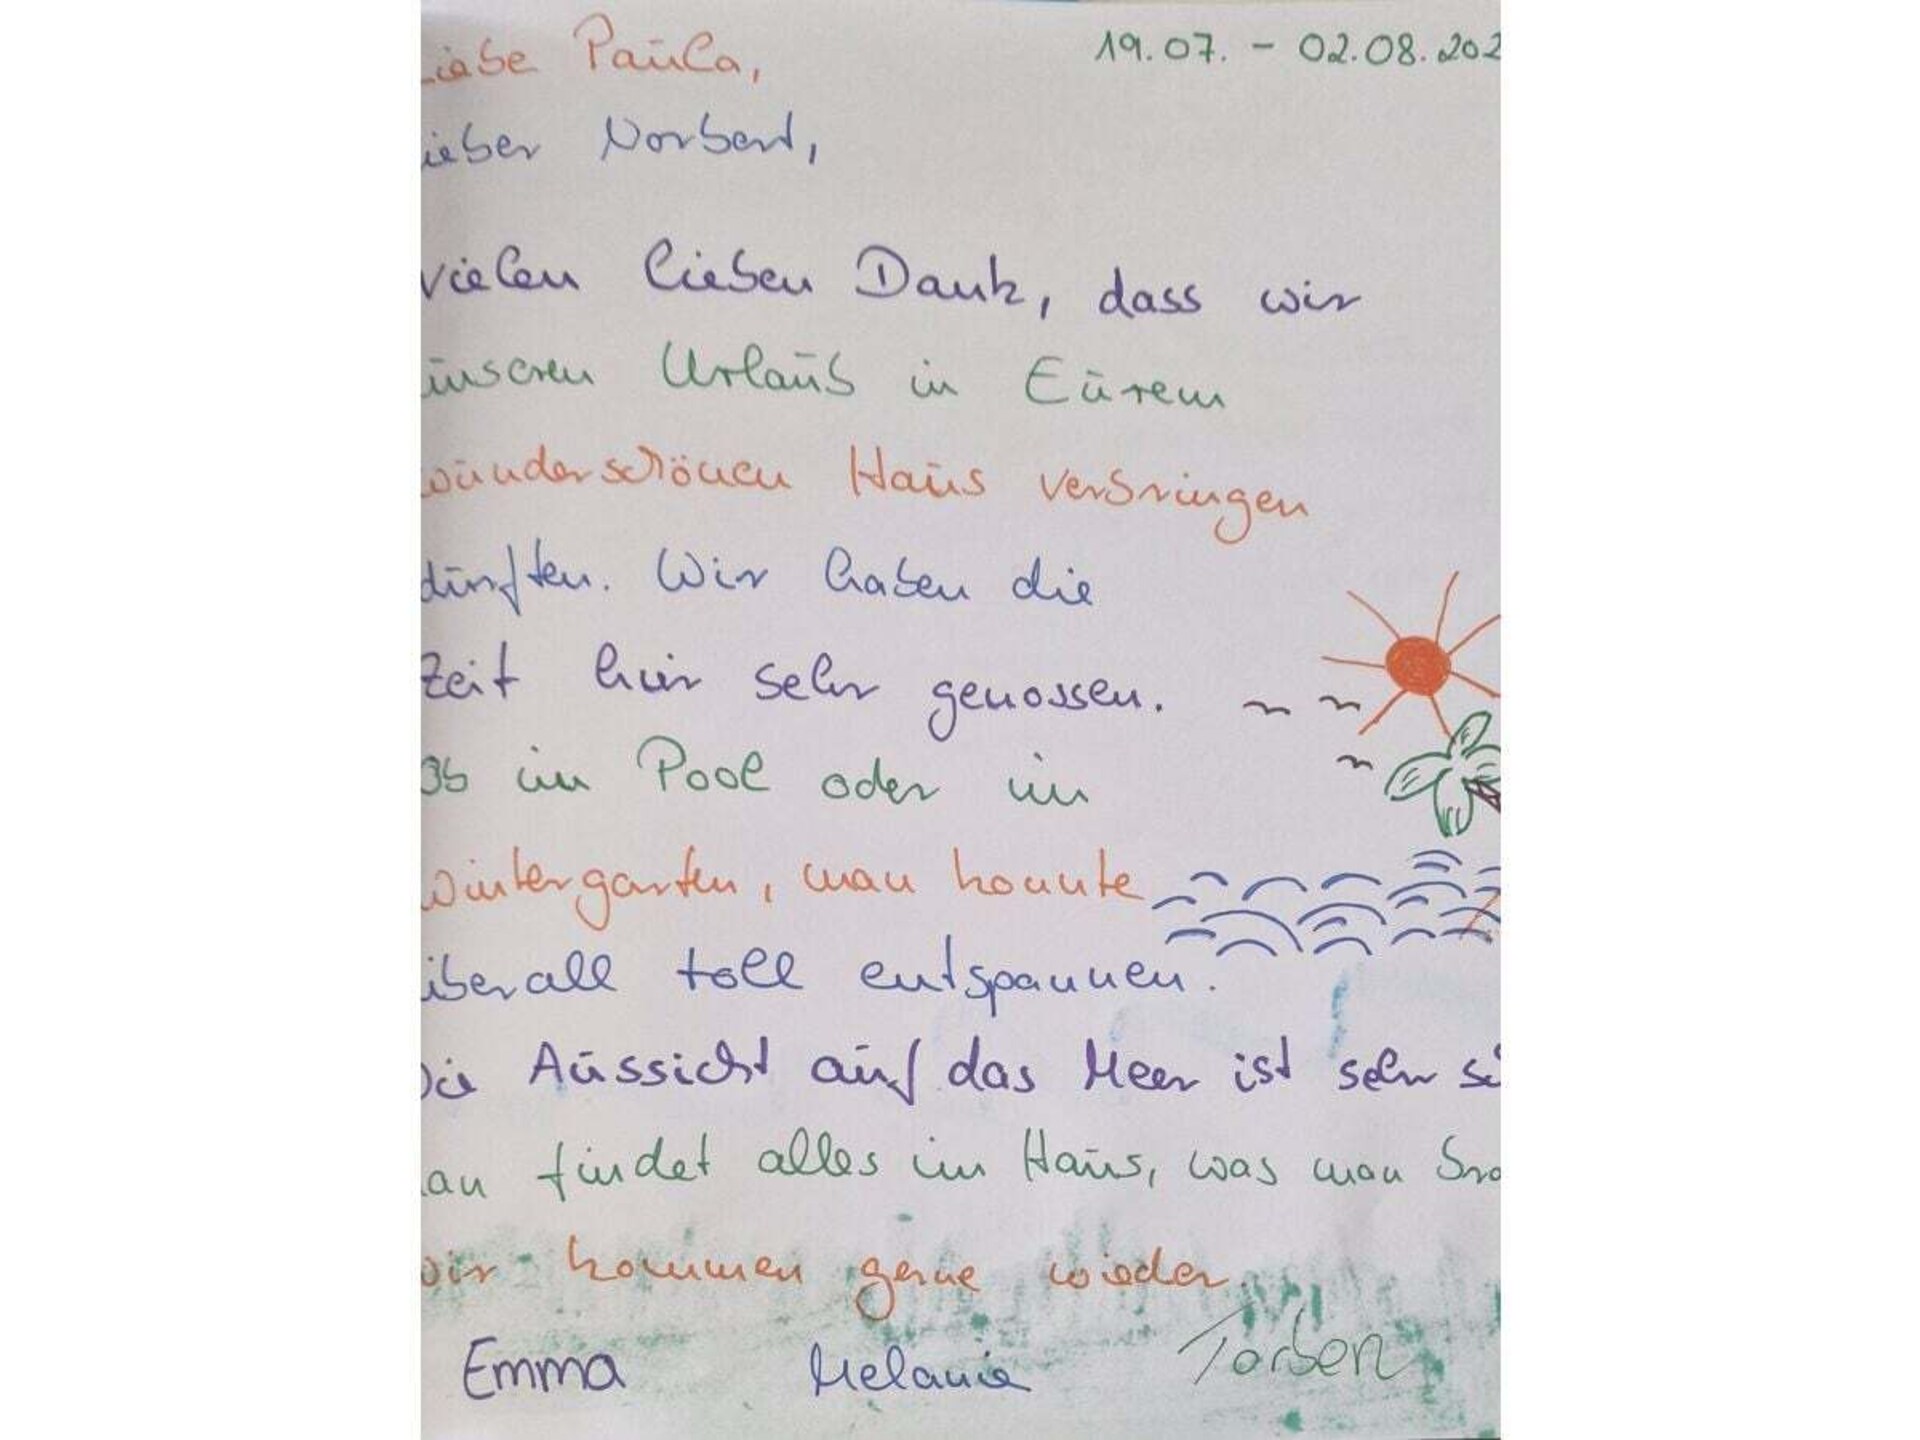 Liebe Paula, 19.07. - 02.08.202
lieber Norbert,
vielen lieben Dank, dass wir
unseren Urlaub in Eurem
wunderschönen Haus verbringen
durften. Wir haben die
Zeit hier sehr genossen.
Ob im Pool oder im
Wintergarten, man konnte
überall toll entspannen.
Die Aussicht auf das Meer ist sehr
man findet alles im Haus, was man
wir kommen gerne wieder.
Emma Melanie Torben